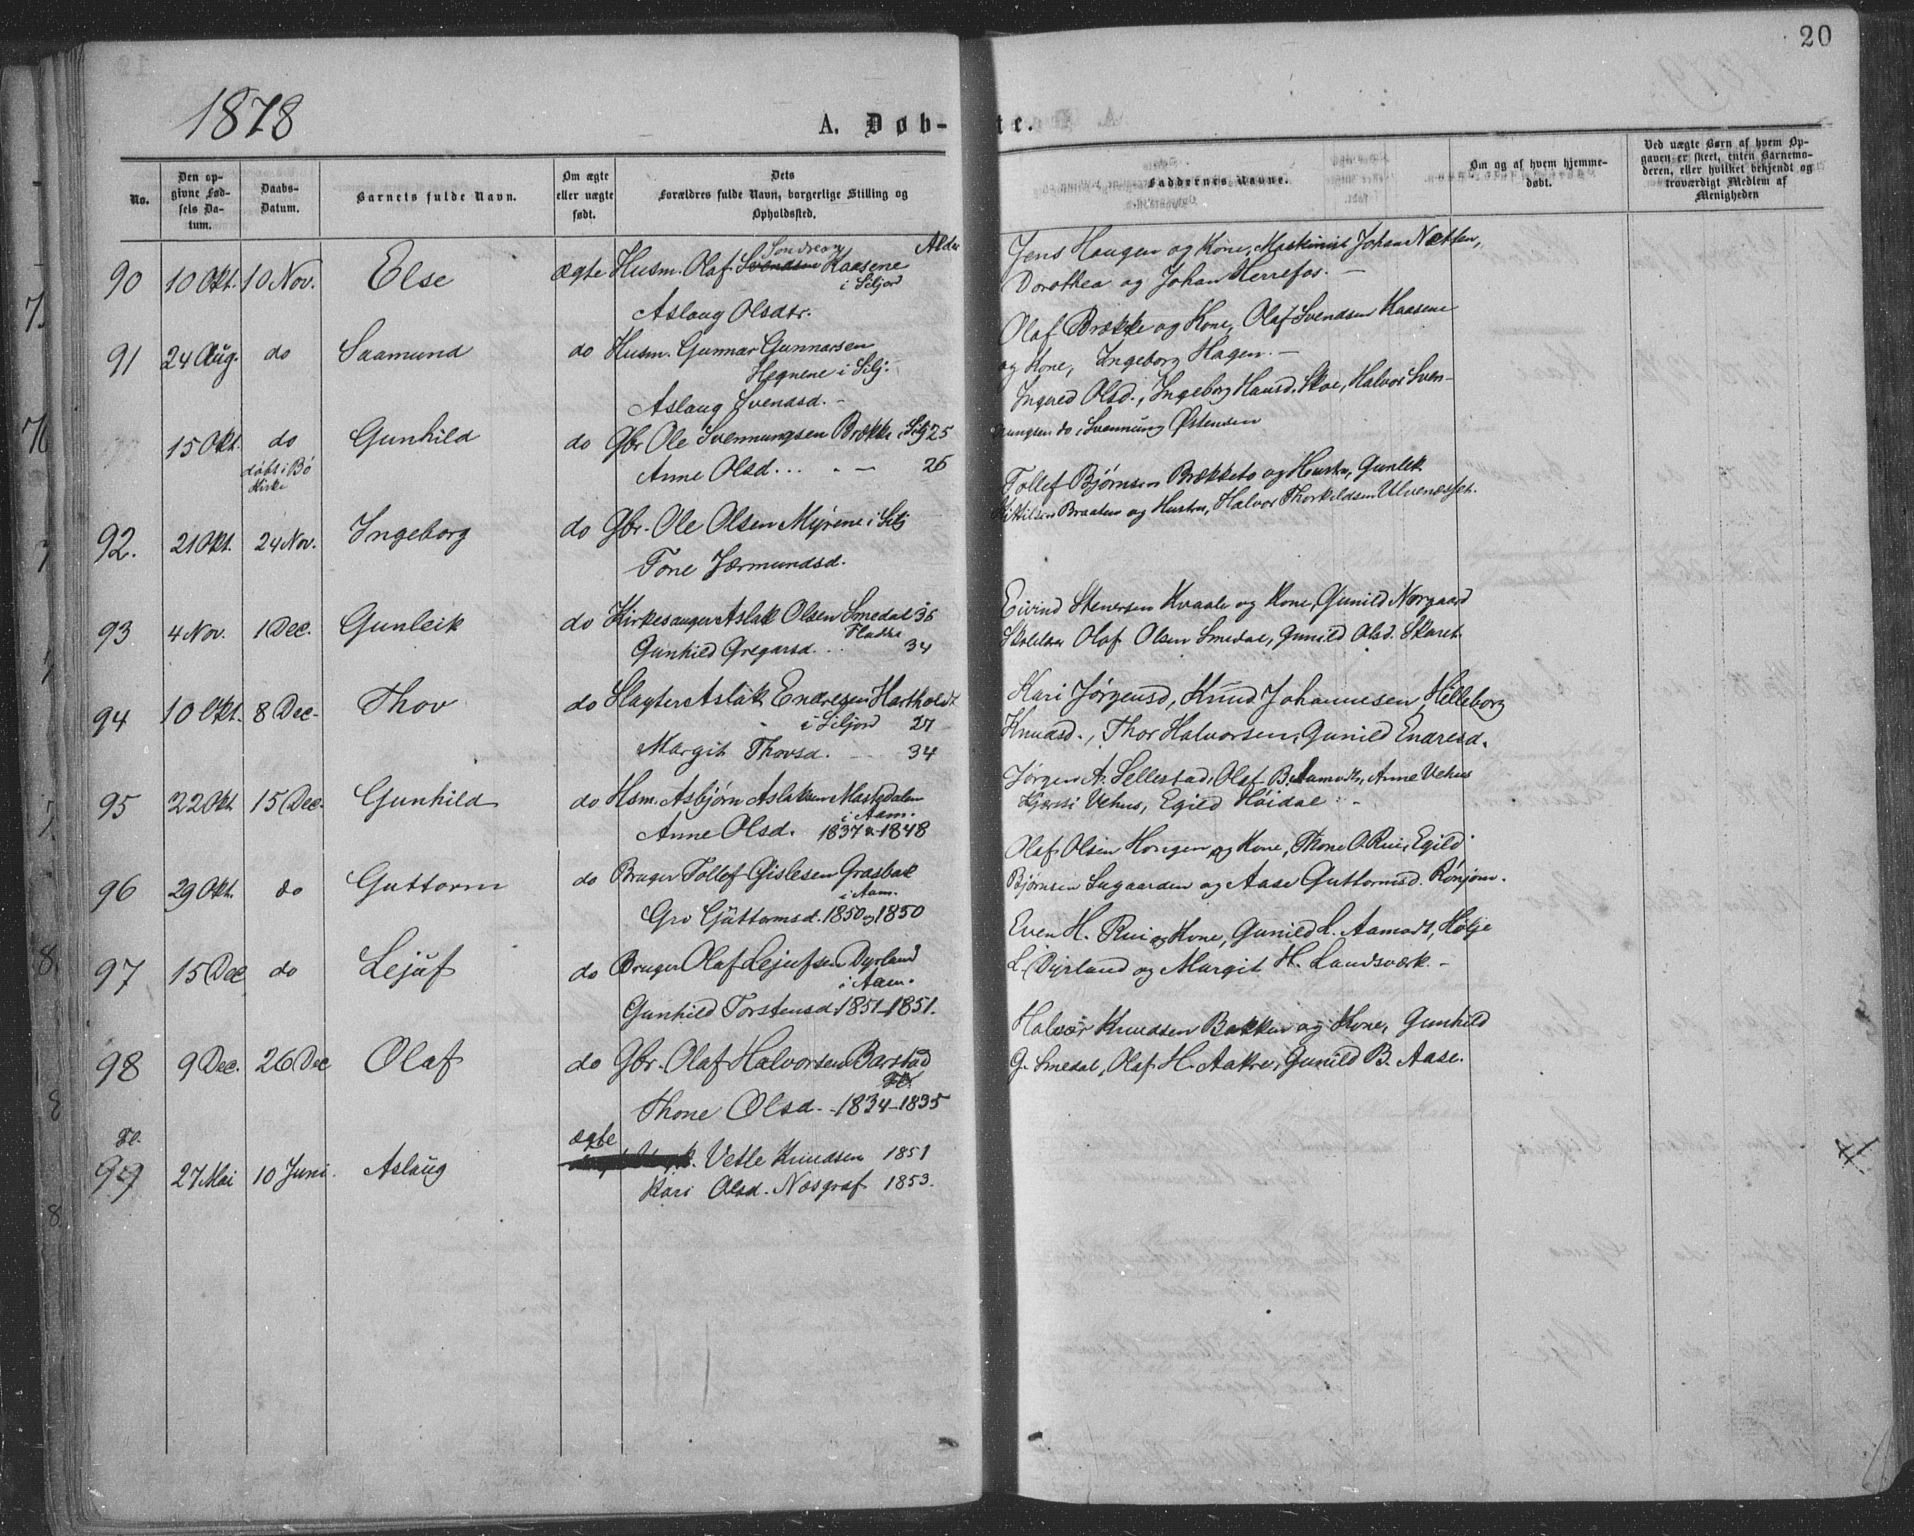 20
1878
A. Døb-
te.
No.
Den op-
givne Fød-
sels Da-
tum.
Daabs-
Datum.
Barnets fulde Navn.
Om ægte
eller uægte
født.
Dets
Forældres fulde Navn, borgerlige Stilling og
Opholdssted.
Faddernes Navne.
Om og af hvem hjemme-
døbt.
Ved uægte Børn af hvem Op-
gaven er skeet, enten Barnemo-
deren, eller hvilket bekjendt og
troværdigt Medlem af
Menigheden
Alder
90 10 Okt. 10 Nov. Else ægte Husm. Olaf Svendsen Kaasene
i Siljord
Aslaug Olsdtr.
Jens Haugen og Kone, Maskinist Johan Nætten,
Dorothea og Johan Herrefos. —
91 24 Aug. do Saamund do Husm. Gunnar Gunnarsen
Hegnene i Silj.
Aslaug Svendsd. -
Olaf Brække og Kone, Olaf Svendsen Kaasene
og Kone, Ingeborg Hagen. —
15 Okt. do Gunhild do Gbr. Ole Svennungsen Brække i Silj 25
døbt i Bø
Kirke
Anne Olsd... . — 26
Ingered Olsd., Ingeborg Hansd. Skoe, Halvor Sven-
nungsen do, Svennung Østensen
92. 21 Okt. 24 Nov. Ingeborg do Gbr. Ole Olsen Myrene i Silj
Tone Jærmundsd.
Tollef Bjørnsen Brækketo og Hustru, Gunlek
Kittilsen Braaten og Hustru, Halvor Thorkildsen Ulvenesset.
93 4 Nov. 1 Dec. Gunleik do Kirkesanger Aslak Olsen Smedal 36
Fladdal
Gunhild Gregarsd. .. 34
Eivind Stenersen Kvaale og Kone, Gunild Norgaard
Olaf Olsen Smedal, Gunild Olsd. Skaret.
94 10 Okt. 8 Dec. Thov do Slagter Aslak Endresen Hartholdt
i Siljord 27
Margit Thovsd. — 34
Kari Jørgensd, Knud Johannesen, Hilleborg
Knudsd., Thor Halvorsen, Gunild Endresd.
95 22 Okt 15 Dec. Gunhild do Hsm. Asbjørn Aslaksen Mastedalen
i Aam.
Anne Olsd. 1837 & 1848
Jørgen A. Sellestad, Olaf B. Aamodt, Anne Vehus
Kjersti Vehus, Egild Høidal. -
96 29 Okt. do Guttorm do Bruger Tollef Gislesen Grasbak
i Aam.
Gro Guttormsd. 1850 og 1850
Olaf Olsen Haugen og Kone, Thone O. Rui, Egild
Bjørnsen Sugaarden og Aase Guttormsd. Rønjom.
97 15 Dec do Lejuf do Bruger Olaf Lejufsen Dyrland
i Aam.
Gunhild Torstensd. 1851-1851.
Even H. Rui og Kone, Gunild L. Aamodt, Hølje
L. Dyrland og Margit H. Landsværk. -
98 9 Dec. 26 Dec Olaf do Gbr. Olaf Halvorsen Barstad
Fl.
Thone Olsd. - 1834-1835
Halvor Knudsen Bakken og Kone, Gunhild
G. Smedal, Olaf H. Aakre, Gunild B. Aase.
Fl.
99 27 Mai 10 Juni. Aslaug ægte Vetle Knudsen 1851
Kari Olsd. Næsgraf 1853.